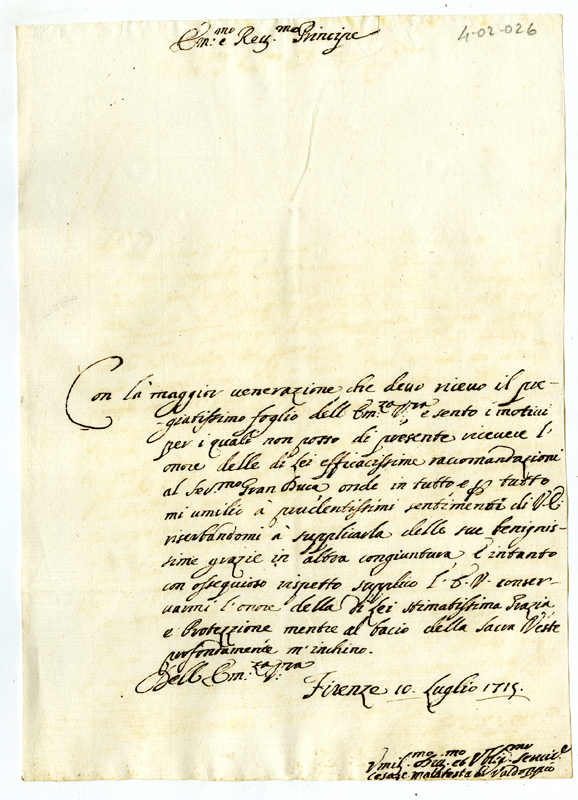 Em.mo e Reu.mo Principe
4-02-026
Con la maggior venerazione che devo riceuo il pre-
-giatissimo foglio dell' Em.za V.ra, e sento i motivi
per i quali non posso di presente riceuere l'
onore delle di Lei efficacissime raccomandazioni
al Ser.mo Gran Duca onde in tutto e p tutto
mi umilio à prudentissimi sentimenti di V.E.
riserbandomi à supplicarla delle sue benignis-
sime grazie in altra congiuntura E intanto
con ossequioso rispetto supplico l' E. V. conser-
uarmi l'onore della di Lei stimatissima Grazia,
e Protezzione mentre al bacio della Sacra Veste
profondamente m' inchino.
Dell' Em.za V.ra
Firenze 10. Luglio 1715.
Vmil.mo Diu.mo et Obl.mo Seruit.e
Cesare Malatesta di